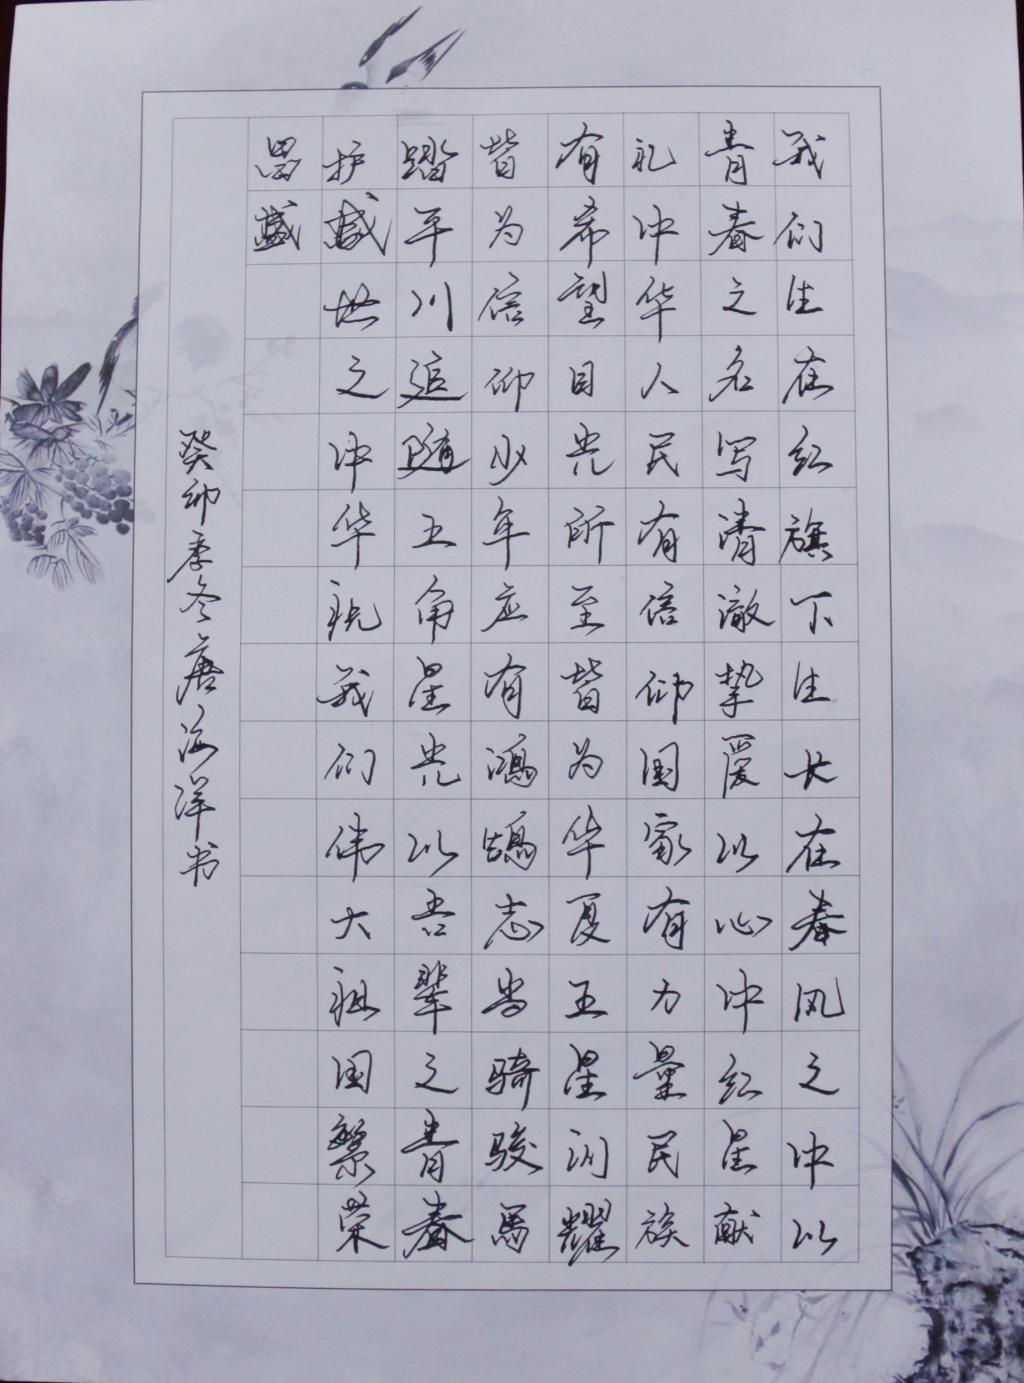 我们生在红旗下生长在春风之中以
青春之名写清澈挚爱以心中红星献
礼中华人民有信仰国家有力量民族
有希望目光所至皆为华夏五星闪耀
皆为信仰少年应有鸿鹄志当骑骏马
踏平川追随五角星光以吾辈之青春
护盛世之中华祝我们伟大祖国繁荣
昌盛
癸卯季冬唐海洋书